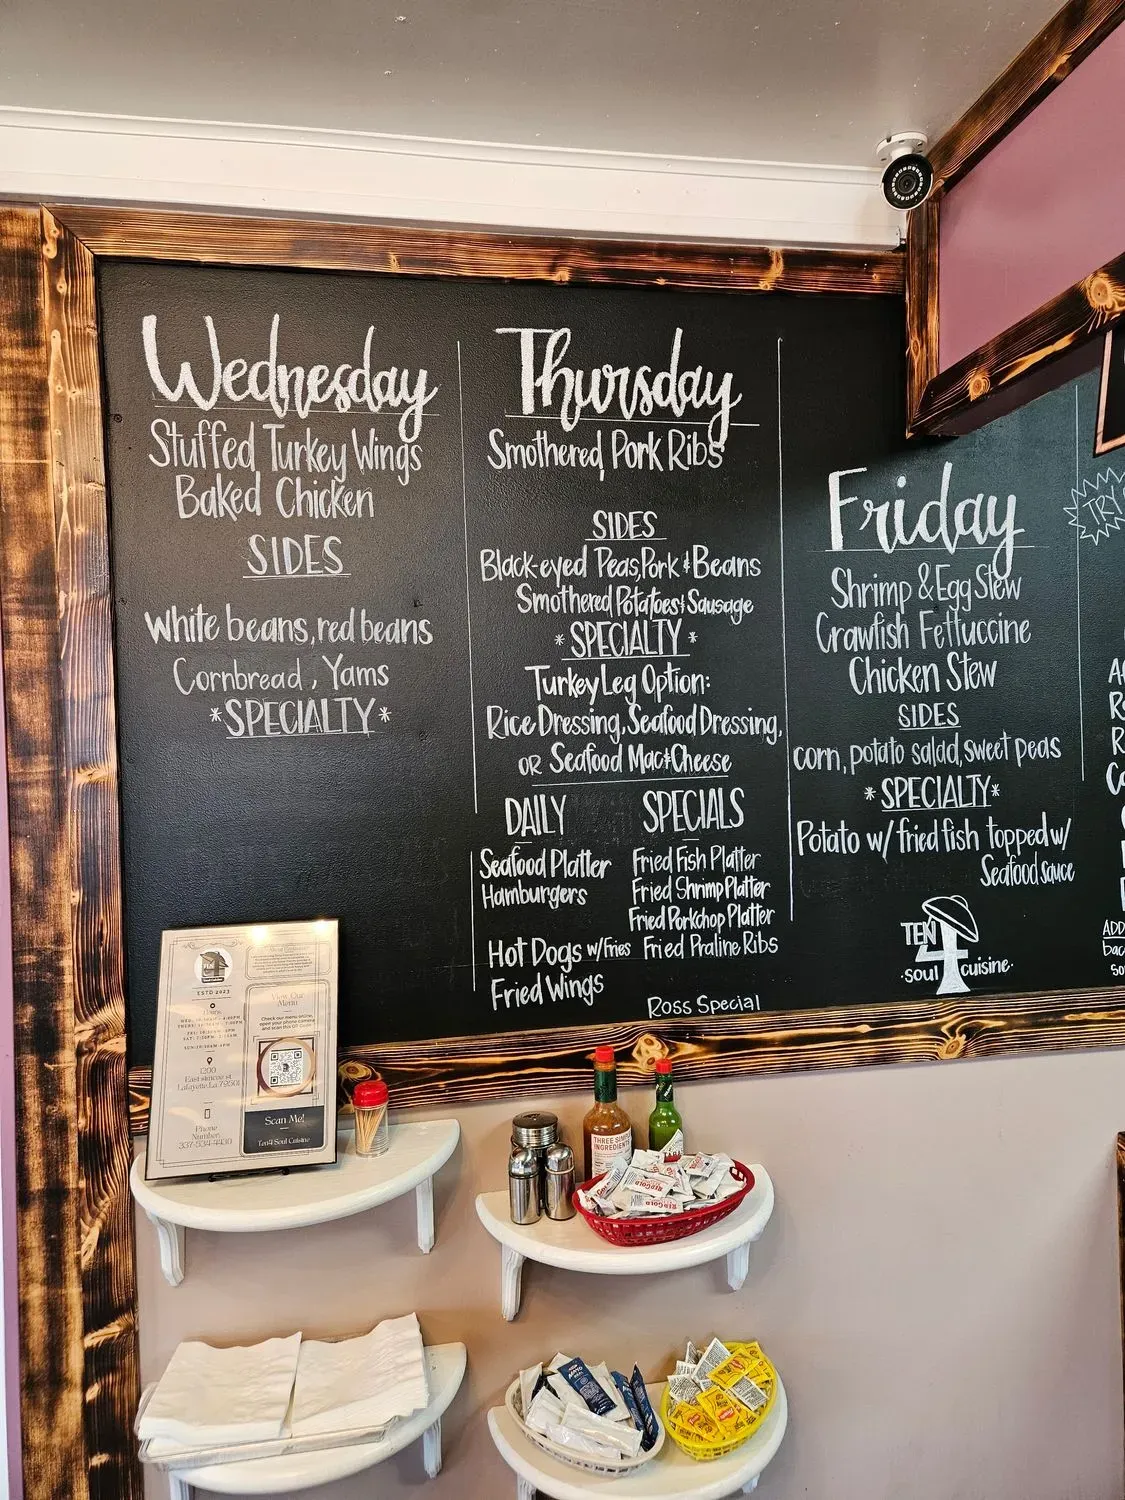 Wednesday
Stuffed Turkey Wings
Baked Chicken
SIDES
White beans, red beans
Cornbread, Yams
*SPECIALTY*
Thursday
Smothered Pork Ribs
SIDES
Black-eyed Peas, Pork & Beans
Smothered Potatoes & Sausage
*SPECIALTY*
Turkey Leg Option:
Rice Dressing, Seafood Dressing,
or Seafood Mac & Cheese
DAILY SPECIALS
Seafood Platter
Hamburgers
Hot Dogs w/Fries
Fried Wings
Fried Fish Platter
Fried Shrimp Platter
Fried Porkchop Platter
Fried Praline Ribs
Ross Special
Friday
Shrimp & Egg Stew
Crawfish Fettuccine
Chicken Stew
SIDES
corn, potato salad, sweet peas
*SPECIALTY*
Potato w/ fried fish topped w/
Seafood sauce
TEN
4
soul cuisine
TRY
ESTD 2023
Hours
View Our
Menu
Check our menu online,
open your phone camera
and scan this QR Code
1200
Lafayette, La 70501
Phone
Number
Scan Me!
Ten4 Soul Cuisine
THREE SIMPLE
INGREDIENTS
RED GOLD
MAYO